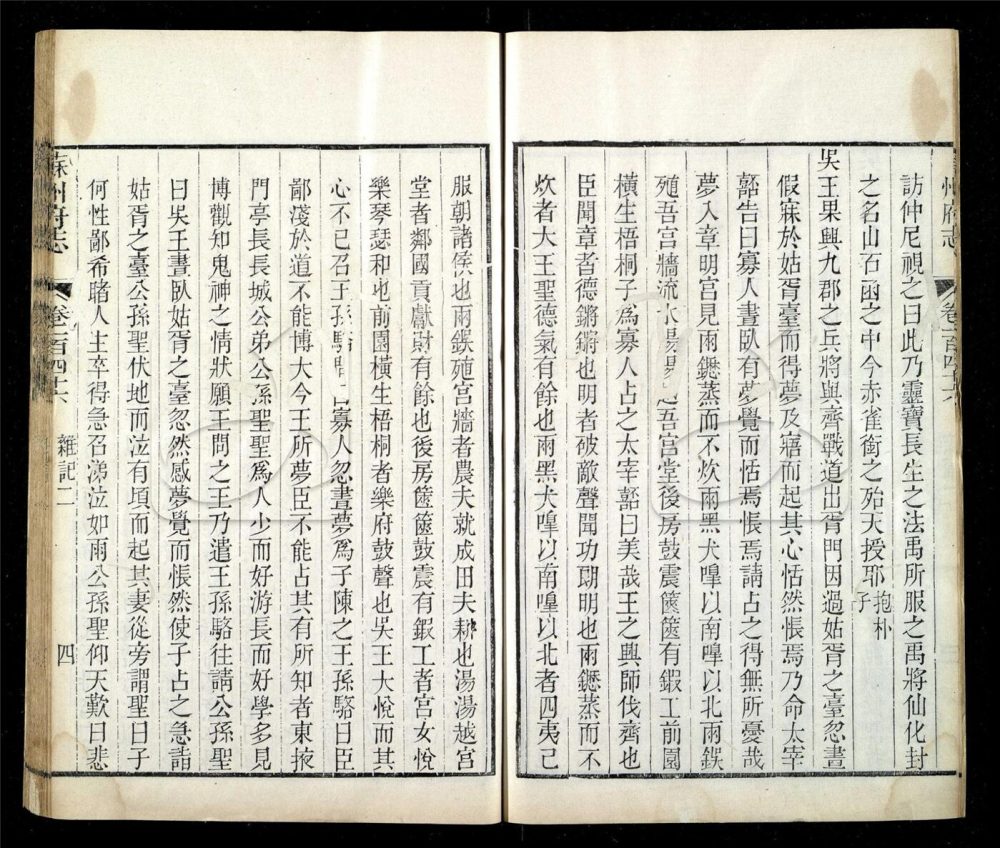 州府志 卷一百四十六
訪仲尼視之曰此乃靈寶長生之法禹所服之禹將仙化封
之名山石函之中今赤雀銜之殆天授耶抱朴子
吳王果興九郡之兵將與齊戰道出胥門因過姑胥之臺忽晝
假寐於姑胥臺而得夢及寤而起其心恬然悵焉乃命太宰
嚭告曰寡人晝臥有夢覺而恬焉悵焉請占之得無所憂哉
夢入章明宮見兩鑩蒸而不炊兩黑犬嘷以南嘷以北兩鋘
殖吾宮牆流水湯湯越吾宮堂後房鼓震篋篋有鍜工前園
橫生梧桐子爲寡人占之太宰嚭曰美哉王之興師伐齊也
臣聞章者德鏘鏘也明者破敵聲聞功瑚明也兩鑩蒸而不
炊者大王聖德氣有餘也兩黑犬嘷以南嘷以北者四夷已
服朝諸侯也兩鋘殖宮牆者農夫就成田夫耕也湯湯越宮
堂者鄰國貢獻財有餘也後房篋篋鼓震有鍜工者宮女悅
樂琴瑟和也前園橫生梧桐者樂府鼓聲也吳王大悅而其
心不已召王孫駱問曰寡人忽晝夢爲子陳之王孫駱曰臣
鄙淺於道不能博大今王所夢臣不能占其有所知者東掖
門亭長長城公弟公孫聖聖爲人少而好游長而好學多見
博觀知鬼神之情狀願王問之王乃遣王孫駱往請公孫聖
曰吳王晝臥姑胥之臺忽然感夢覺而悵然使子占之急詣
姑胥之臺公孫聖伏地而泣有頃而起其妻從旁謂聖曰子
何性鄙希睹人主卒得急召涕泣如雨公孫聖仰天歎曰悲
蘇州府志 卷一百四十六 雜記二 四